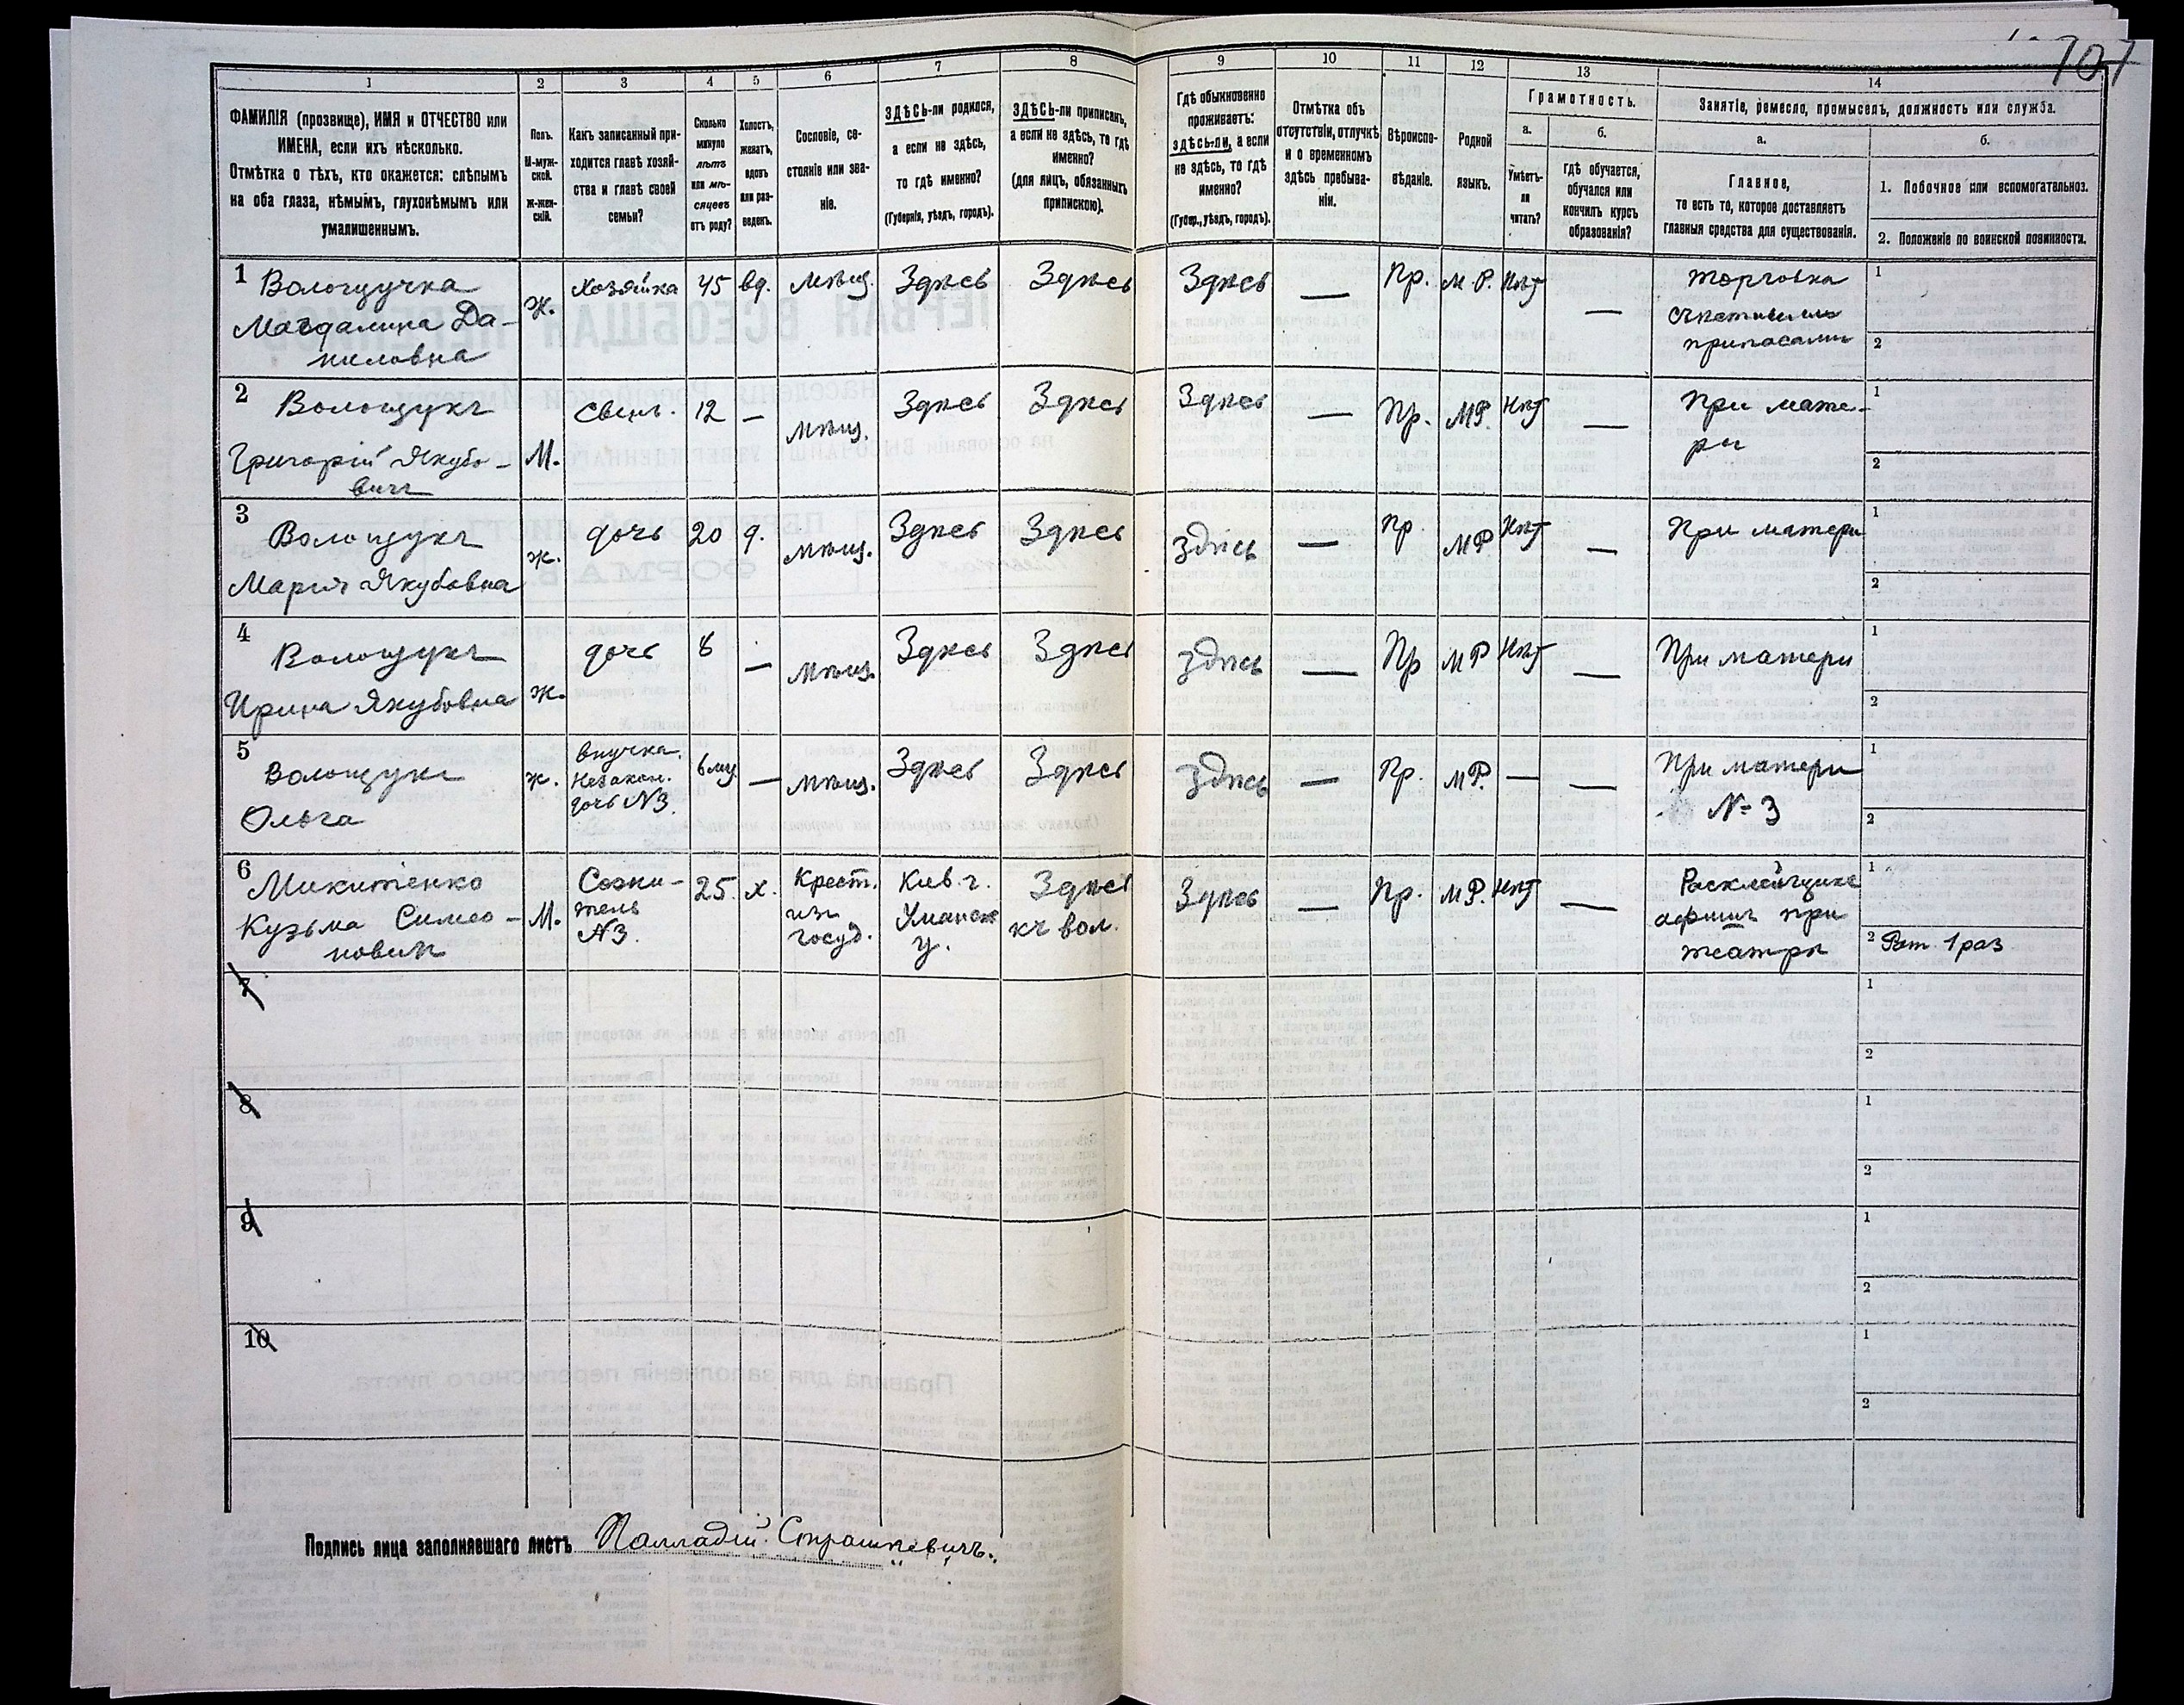 707
1
2
3
4
5
6
7
8
9
10
11
12
13
14
ФАМИЛІЯ (прозвище), ИМЯ и ОТЧЕСТВО или
ИМЕНА, если ихъ нѣсколько.
Отмѣтка о тѣхъ, кто окажется: слѣпымъ
на оба глаза, нѣмымъ, глухонѣмымъ или
умалишеннымъ.
Полъ.
М-муж-
ской.
Ж-жен-
скій.
Какъ записанный при-
ходится главѣ хозяй-
ства и главѣ своей
семьи?
Сколько
минуло
лѣтъ
или мѣ-
сяцевъ
отъ роду?
Холостъ,
женатъ,
вдовъ
или раз-
веденъ.
Сословіе, со-
стояніе или зва-
ніе.
ЗДѢСЬ-ли родился,
а если не здѣсь,
то гдѣ именно?
(Губернія, уѣздъ, городъ).
ЗДѢСЬ-ли приписанъ,
а если не здѣсь, то гдѣ
именно?
(для лицъ, обязанныхъ
припискою).
Гдѣ обыкновенно
проживаетъ:
здѣсь-ли, а если
не здѣсь, то гдѣ
именно?
(Губер., уѣздъ, городъ).
Отмѣтка объ
отсутствіи, отлучкѣ
и о временномъ
здѣсь пребыва-
ніи.
Вѣроиспо-
вѣданіе.
Родной
языкъ.
Грамотность.
а.
б.
Умѣетъ-
ли
читать?
Гдѣ обучается,
обучался или
кончилъ курсъ
образованія?
Занятіе, ремесло, промыселъ, должность или служба.
а.
б.
Главное,
то есть то, которое доставляетъ
главныя средства для существованія.
1. Побочное или вспомогательное.
2. Положеніе по воинской повинности.
1 Волощучка
Магдалина Да-
ниловна
Ж.
Хозяйка
45
вд.
мѣщ.
Здѣсь
Здѣсь
Здѣсь
—
Пр.
М.Р.
Нѣт
—
торговка
съѣстными
припасами
1
2
2 Волощукъ
Григорій Якубо-
вичъ
М.
Сынъ.
12
—
мѣщ.
Здѣсь
Здѣсь
Здѣсь
—
Пр.
МР.
Нѣт
—
При мате-
ри
1
2
3
Волощукъ
Мария Якубовна
ж.
дочь
20
д.
мѣщ.
Здѣсь
Здѣсь
здѣсь
—
Пр.
МР
Нѣт
—
При матери
1
2
4
Волощукъ
Ирина Якубовна
ж.
дочь
8
—
мѣщ.
Здѣсь
Здѣсь
здѣсь
—
Пр
МР
Нѣт
—
При матери
1
2
5
Волощукъ
Ольга
ж.
внучка.
Незакон.
дочь №3.
6 мц.
—
мѣщ.
Здѣсь
Здѣсь
здѣсь
—
Пр.
МР.
—
—
При матери
№ 3
1
2
6
Микитенко
Кузьма Симео-
новичъ
М.
Сожи-
тель
№3.
25.
х.
Крест.
изъ
госуд.
Киев. г.
Уманск
у.
Здѣсь
къ вол.
Здѣсь
—
Пр.
МР.
нѣт
—
Расклейщикъ
афишъ при
театрѣ
1
2 Рат. 1 раз
7
1
2
8
1
2
9
1
2
10
1
2
Подпись лица заполнявшаго листъ Палладій Страшкевичъ.